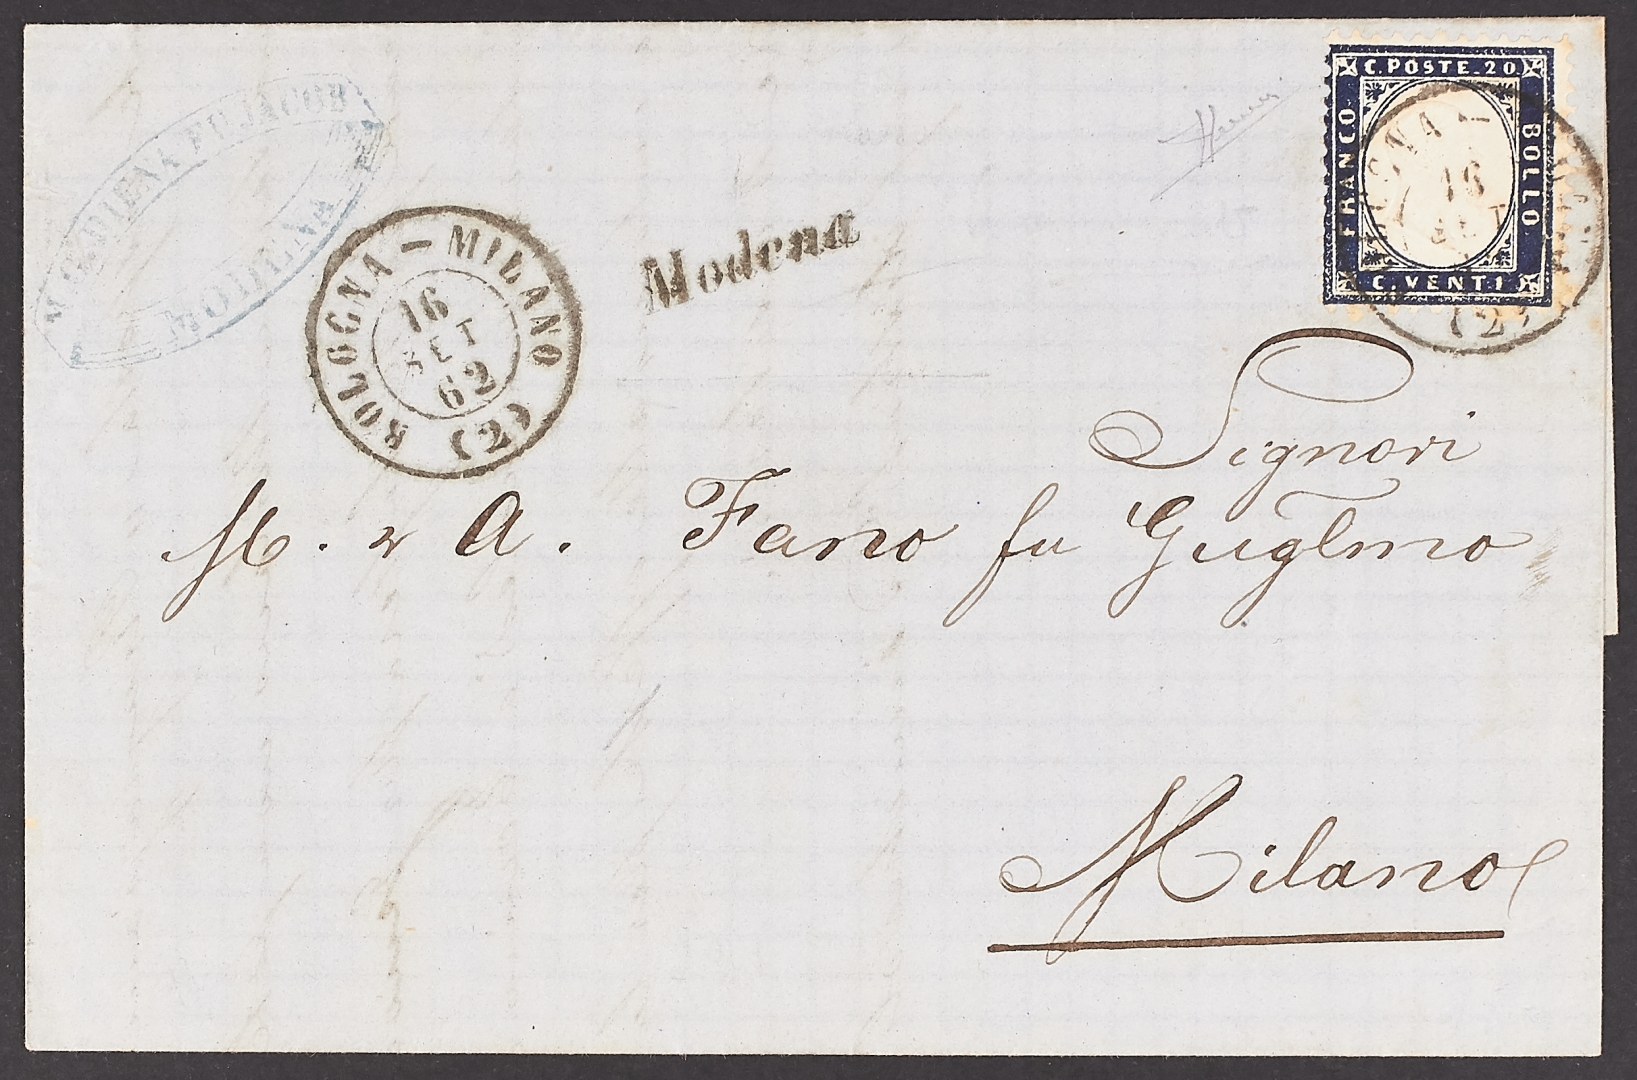 M. G. DIENA FU JACOB
MODENA
C. POSTE. 20.
FRANCO
BOLLO
C. VENTI
BOLOGNA - MILANO
16
SET
62
(2)
Modena
16
SET
(2)
Signori
M. & A. Fano fu Guglmo
Milano